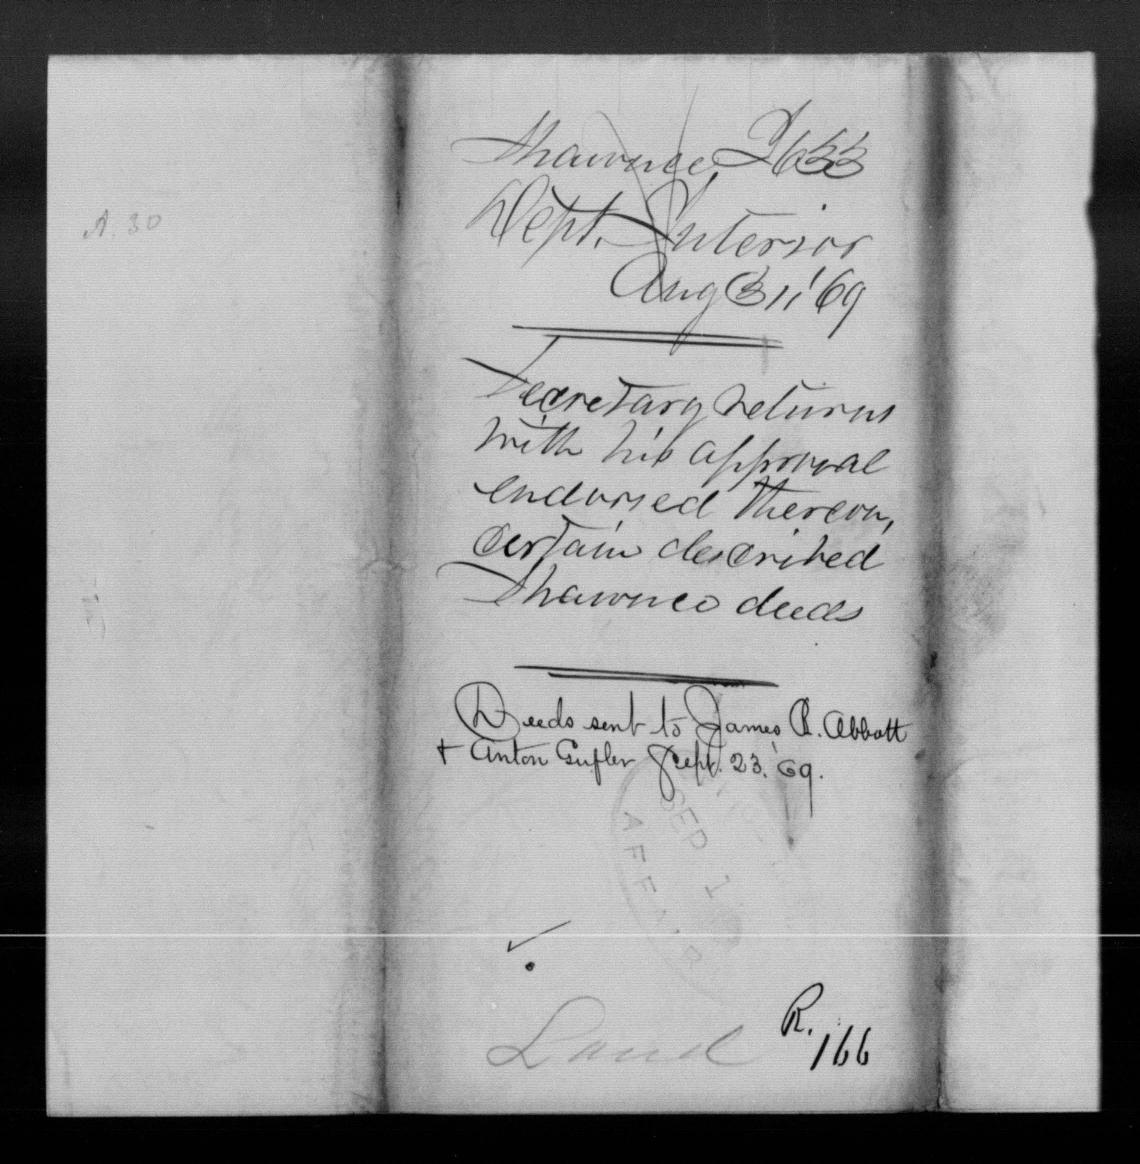 A. 30
Shawnee, I633
Dept. Interior
Aug 31, '69
Secretary returns
with his approval
endorsed thereon,
certain described
Shawnee deeds
Deeds sent to James B. Abbott
+ Anton Gufler Sept. 23. '69.
SEP 1
AFFAIR
Land
R.
166